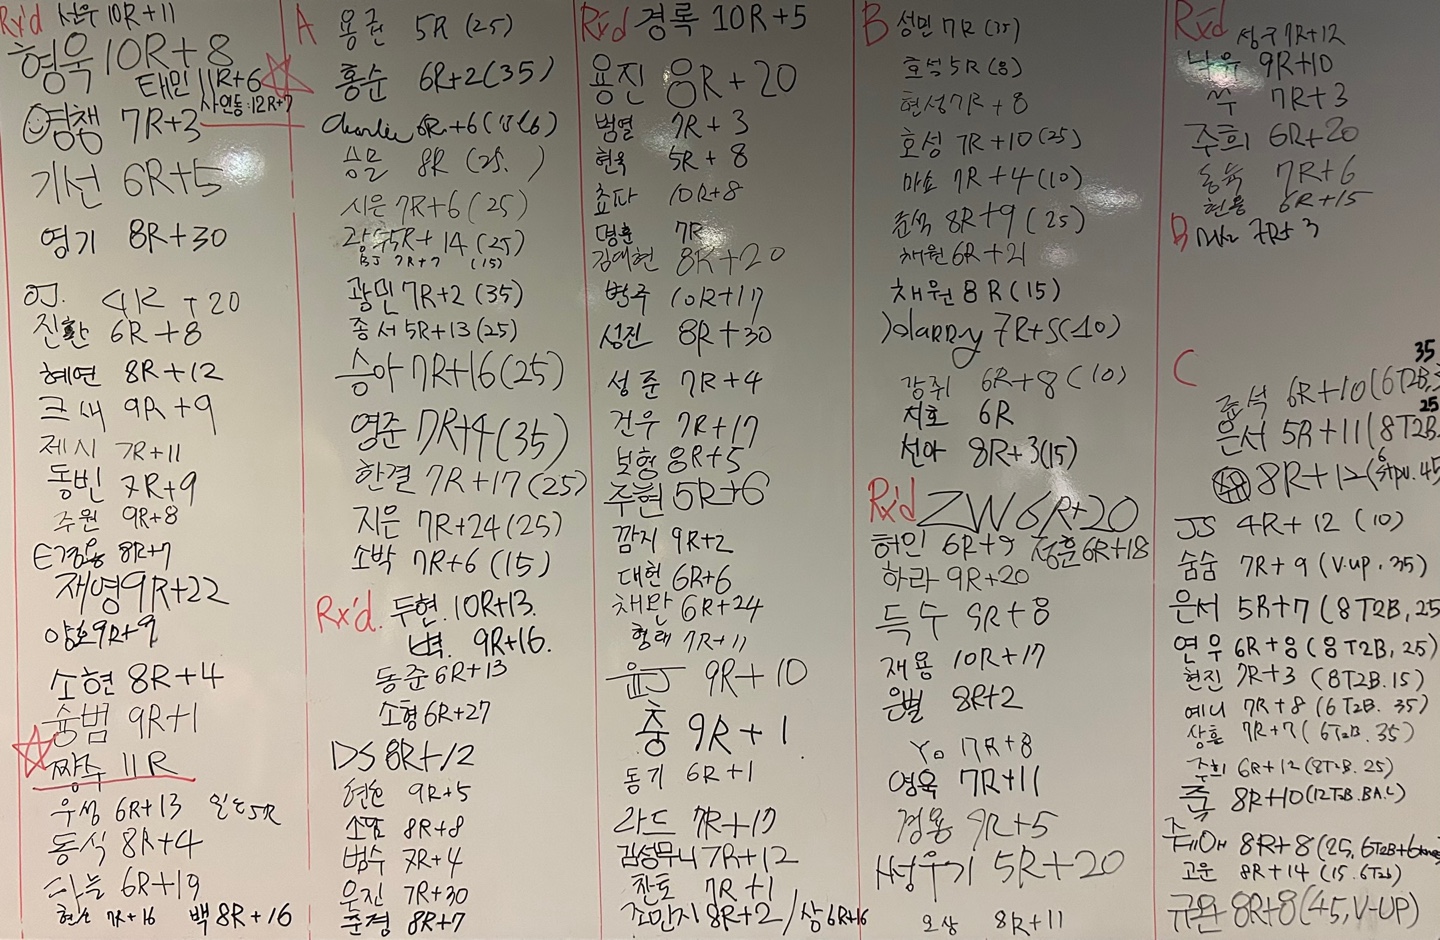 Rx'd 선우 10R+11
형욱 10R+8
태민 11R+6
사인동:12R+7
영챙 7R+3
기선 6R+5
영기 8R+30
OJ. 4R +20
진환 6R+8
혜연 8R+12
크새 9R+9
제시 7R+11
동빈 7R+9
주원 9R+8
8R+7
재영 9R+22
양호 9R+9
소현 8R+4
숭범 9R+1
짱주 11R
우성 6R+13 5R
동식 8R+4
하늘 6R+19
현소 7R+16 백 8R+16
A 용권 5R (25)
홍순 6R+2(35)
Charlie 6R+6
승문 8R (25. )
시은 7R+6 (25)
광수 5R+14 (25)
BJ 7R+7 (15)
광민 7R+2 (35)
종서 5R+13 (25)
승아 7R+16(25)
영준 7R+4(35)
한결 7R+17(25)
지은 7R+24(25)
소박 7R+6 (15)
Rx'd. 두현. 10R+13.
벽. 9R+16.
동준 6R+13
소형 6R+27
DS 8R+12
현손 9R+5
소담 8R+8
범수 7R+4
우진 7R+30
준경 8R+7
Rx'd 경록 10R+5
용진 8R+20
범열 7R+3
현욱 5R+8
쵸파 10R+8
명훈 7R
김예현 8R+20
범주 10R+17
성진 8R+30
성준 7R+4
건우 7R+17
보형 8R+5
주현 5R+6
깜지 9R+2
대현 6R+6
채완 6R+24
형래 7R+11
윤J 9R+10
충 9R+1
동기 6R+1
라드 7R+17
김성무니 7R+12
찬토 7R+1
조만지 8R+2 / 삼 6R+16
B 성민 7R (15)
호석 5R (8)
현성 7R+8
호성 7R+10(25)
마쇼 7R+4(10)
준석 8R+9 (25)
채원 6R+21
채원 8R(15)
Harry 7R+5(10)
강쥐 6R+8 (10)
지호 6R
선아 8R+3(15)
Rx'd ZW 6R+20
허인 6R+9 정훈 6R+18
하라 9R+20
득수 9R+8
재용 10R+17
은별 8R+2
Yo 17R+8
영욱 7R+11
경용 9R+5
5R+20
오상 8R+11
Rx'd 성구 7R+12
낙유 9R+10
쑤 7R+3
주희 6R+20
동욱 7R+6
현용 6R+15
B 7R+3
C 35
준석 6R+10(6T2B,
25
은서 5R+11(8T2B.
8R+12
JS 4R+12 (10)
숨숨 7R+9 (V.up. 35)
은서 5R+7 (8T2B, 25
연우 6R+8 (8T2B, 25)
현진 7R+3 (8T2B.15)
예니 7R+8 (6T2B. 35)
상훈 7R+7 (6T2B. 35)
주희 6R+12 (8T2B. 25)
쥭 8R+10(12T2B.BA.L)
8R+8(25, 6T2B+
고운 8R+14 (15.6T2B)
규완 8R+8(45,V-UP)